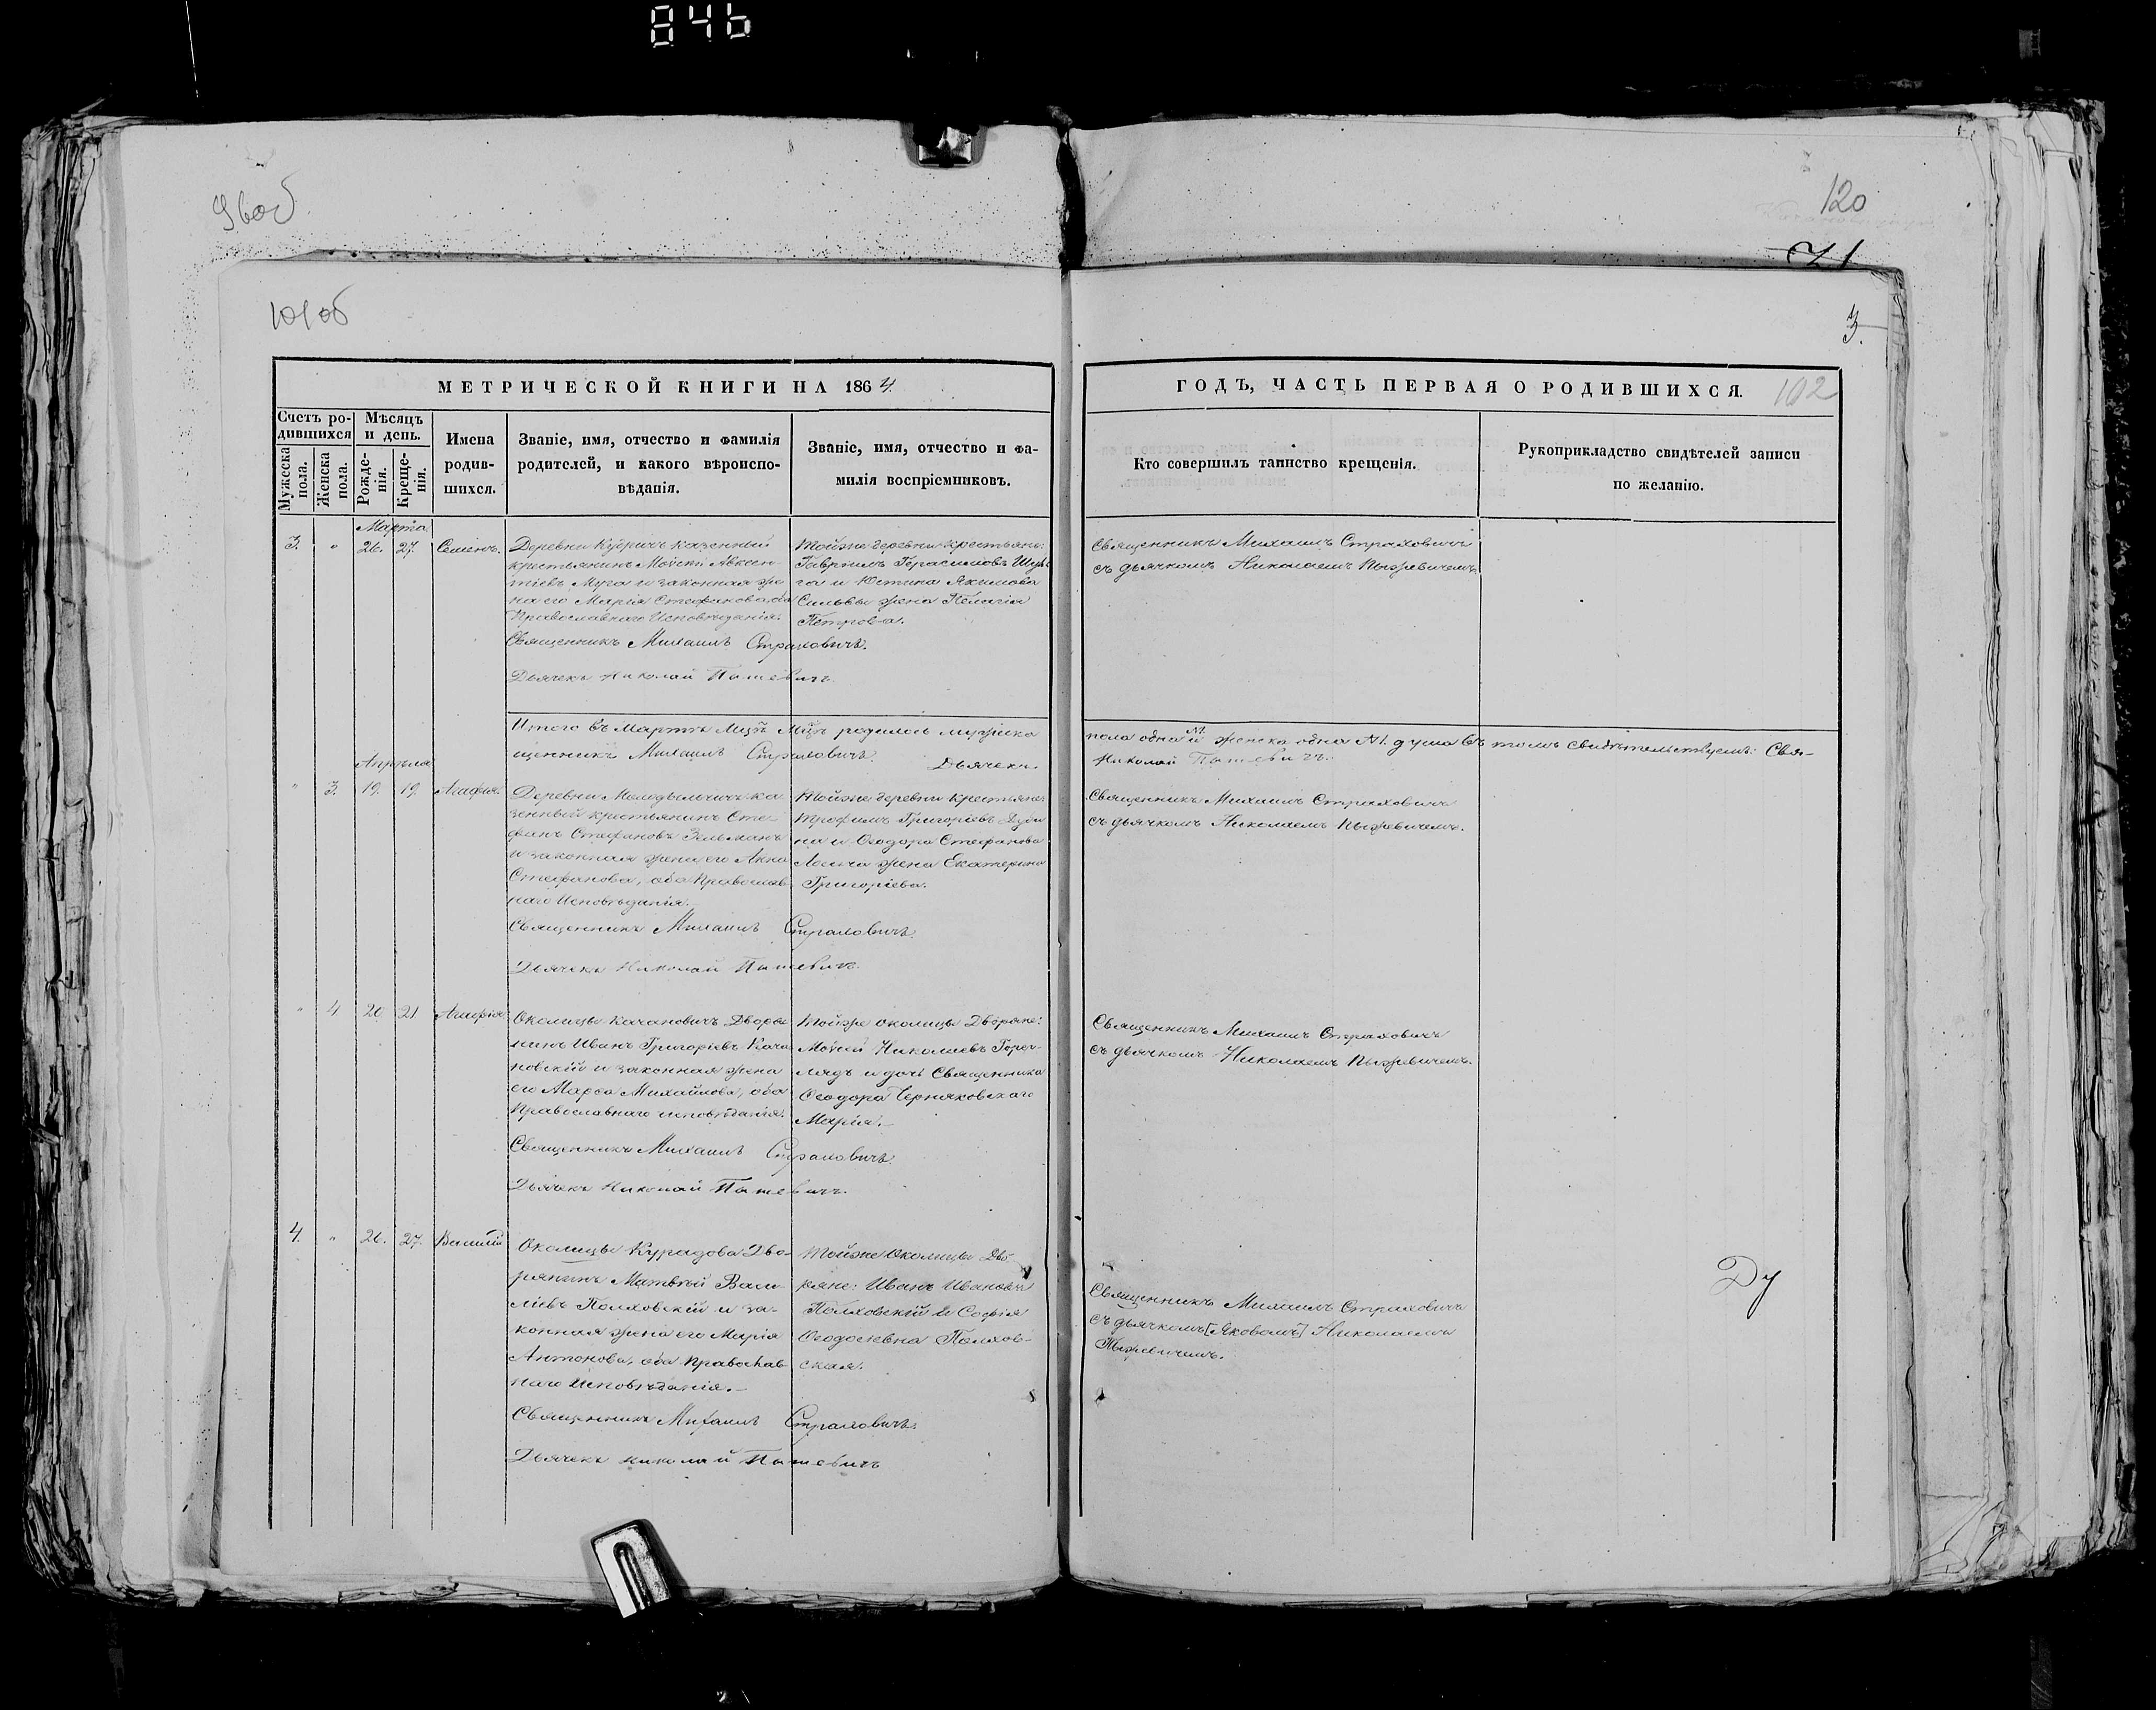 846
96об
120
71
101об
3.
МЕТРИЧЕСКОЙ КНИГИ НА 1864.
ГОДЪ, ЧАСТЬ ПЕРВАЯ О РОДИВШИХСЯ.
102
Счетъ ро-
дившихся
Мужеска
пола.
Женска
пола.
Мѣсяцъ
и день.
Рожде-
нія.
Креще-
нія.
Имена
родив-
шихся.
Званіе, имя, отчество и фамилія
родителей, и какого вѣроиспо-
вѣданія.
Званіе, имя, отчество и фа-
милія воспріемниковъ.
Кто совершилъ таинство крещенія.
Рукоприкладство свидѣтелей записи
по желанію.
Марта
3. " 26. 27. Семенъ.
Деревни Кудричъ казенный
крестьянинъ Моисей Авксен-
тіевъ Мура и законная же-
на его Марія Стефанова, оба
Православнаго Исповѣданія.
Священникъ Михаилъ Страховичъ.
Дьячекъ Николай Пыжевичъ
Тойже деревни крестьяне:
Гавріилъ Герасимовъ
и Юстина Якимова
жена Пелагія
Петрова.
Священникъ Михаилъ Страховичъ
съ дьячкомъ Николаемъ Пыжевичемъ.
Итого въ Мартѣ Мцѣ родилось мужеска
пола одна и женска одна №1. душа въ томъ свидѣтельствуемъ: Свя-
щенникъ Михаилъ Страховичъ. Дьячекъ.
Николай Пыжевичъ.
Апрѣля
" 3. 19. 19. Агафія.
Деревни Молодельчичъ ка-
зенный крестьянинъ Сте-
фанъ Стефановъ Зельманъ
и законная жена его Анна
Стефанова, оба Православ-
наго Исповѣданія.
Священникъ Михаилъ Страховичъ.
Дьячекъ Николай Пыжевичъ.
Тойже деревни крестьяне:
Трофимъ Григоріевъ Дуби-
на и Ѳеодора Стефанова
жена Екатерина
Григоріева.
Священникъ Михаилъ Страховичъ
съ дьячкомъ Николаемъ Пыжевичемъ.
" 4. 20. 21. Агафія
Околицы Качановичъ Дворя-
нинъ Иванъ Григоріевъ Кача-
новскій и законная жена
его Марѳа Михайлова, оба
Православнаго исповѣданія.
Священникъ Михаилъ Страховичъ.
Дьячекъ Николай Пыжевичъ.
Тойже околицы Дворяне:
Моисей Николаевъ
и дочь Священника
Ѳеодора Черняковскаго
Марія.
Священникъ Михаилъ Страховичъ
съ дьячкомъ Николаемъ Пыжевичемъ.
4. " 26. 27. Василій
Околицы Курадова Дво-
рянинъ Матвѣй Васи-
ліевъ Полховскій и за-
конная жена его Марія
Антонова, оба Православ-
наго Исповѣданія.
Священникъ Михаилъ Страховичъ.
Дьячекъ Николай Пыжевичъ
Тойже Околицы Дво-
ряне: Иванъ Ивановъ
Полховскій и Софія
Ѳеодосіевна Полхов-
ская.
Священникъ Михаилъ Страховичъ
съ дьячкомъ [Яковомъ] Николаемъ
Пыжевичемъ.
Ду